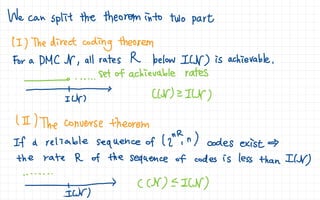 We can split the theorem into two part
(I) The direct coding theorem
For a DMC N, all rates R below I(N) is achievable.
....... set of achievable rates
I(N)
C(N) ≥ I(N)
(II) The converse theorem
If a reliable sequence of (2^{nR}, n) codes exist ⇒
the rate R of the sequence of codes is less than I(N)
........
C(N) ≤ I(N)
I(N)